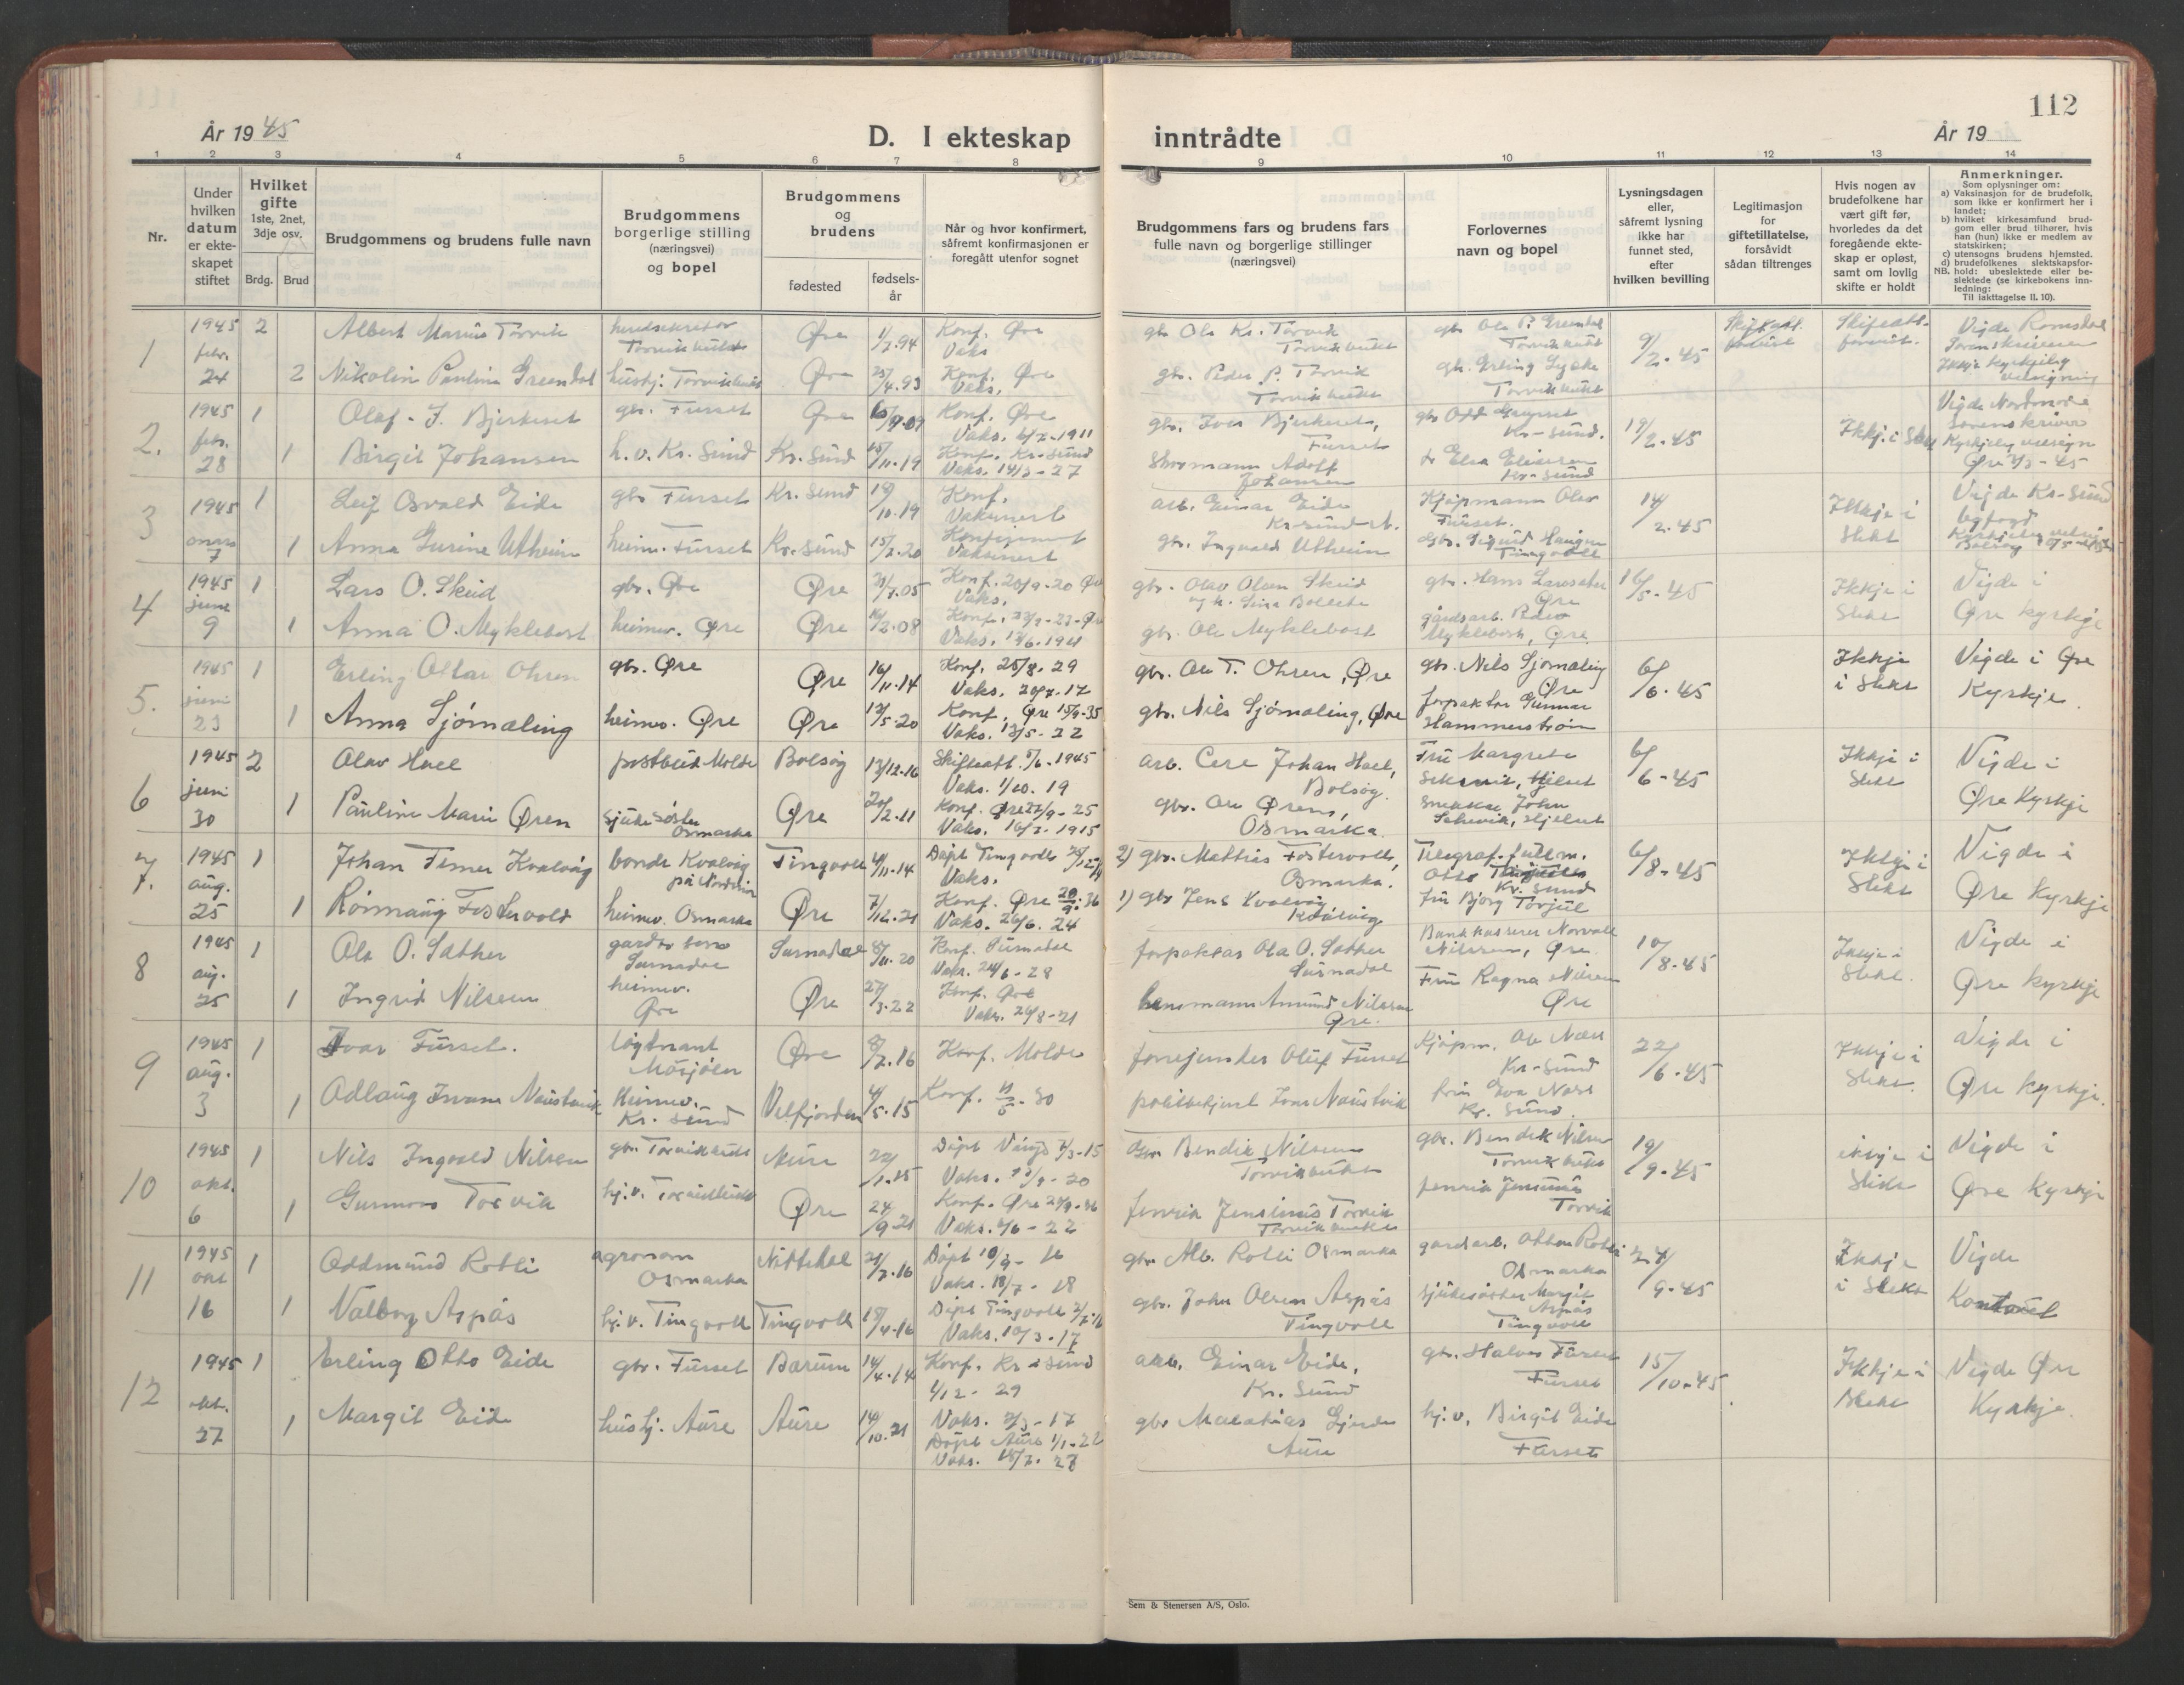 112
År 1945
D. I ekteskap inntrådte
År 19
1 2 3 4 5 6 7 8 9 10 11 12 13 14
Nr.
Under hvilken datum er ekteskapet stiftet
Hvilket gifte 1ste, 2net, 3dje osv.
Brdg. Brud
Brudgommens og brudens fulle navn
Brudgommens borgerlige stilling (næringsvei) og bopel
Brudgommens og brudens
fødested
fødselsår
Når og hvor konfirmert, såfremt konfirmasjonen er foregått utenfor sognet
Brudgommens fars og brudens fars fulle navn og borgerlige stillinger (næringsvei)
Forlovernes navn og bopel
Lysningsdagen eller, såfremt lysning ikke har funnet sted, efter hvilken bevilling
Legitimasjon for giftetillatelse, forsåvidt sådan tiltrenges
Hvis nogen av brudefolkene har vært gift før, hvorledes da det foregående ekteskap er opløst, samt om lovlig skifte er holdt
Anmerkninger.
Som oplysninger om:
a) Vaksinasjon for de brudefolk, som ikke er konfirmert her i landet;
b) hvilket kirkesamfund brudgom eller brud tilhører, hvis han (hun) ikke er medlem av statskirken;
c) utensogns brudens hjemsted.
d) brudefolkenes slektskapsforhold: ubeslektede eller beslektede (se kirkebokens innledning:
NB.
Til iakttagelse II. 10).
1 1945 febr. 24
2 Albert Marius Torvik Torvikbukt Øre 1/7.94 Konf. Øre Vaks gbr. Ole Kr. Torvik Torvikbukt gbr. Ole P. Grendal Torvikbukt 9/2.45
2 Nikolin Paulina Grendal hushj. Torvikbukt Øre 25/4.93 Konf. Øre Vaks. gbr. Peder P. Torvik Torvikbukt gbr. Erling Torvikbukt
Vigde Romsdal Sorenskriveren
2. 1945 febr. 28
1 Olaf. J. Bjerkeset gbr. Furset Øre Konf. Øre Vaks. 6/7-1911 gbr. Iver Bjerkeset, Furset gbr. Odd Kr-sund. 19/2.45 Ikkj. i Slekt
1 Birgit Johansen h.v. Kr. Sund Kr. Sund 15/11.19 Konf. Kr-sund Vaks. 14/3-27 Adolf Johansen Kr-sund
Vigde Nordmøre sorenskriver Øre
3 1945 mars 7
1 Leif Osvald Eide gbr Furset Kr. Sund 10.19 Konf. Vaksinert arb. Einar Eide Kr-sund N. Kjøpmann Olav Furset. 14/2.45 Ikkje i Slekt
1 Anna Gurine Utheim heim. Furset Kr. Sund 15/2.20 Konfirmert Vaksinert gbr. Ingvald Utheim gbr. Sigurd Haugen Tingvoll
Vigde Kr-Sund byfogd
4 1945 june 9
1 Lars O. Skeid gbr. Øre Øre Konf. 20/9-20 Øre Vaks. gbr. Olav Olsen Skeid gbr. Hans Øre 16/5.45 Ikkje i Slekt Vigde i Øre kyrkje
1 Anna O. Myklebost heimev. Øre Øre 2.08 Konf. 23/9-23-Øre Vaks. 12/6.1911 gbr. Ole Myklebost gårdsarb. Peder Myklebost, Øre
5. 1945 juni 23
1 Erling Ottar Ohren gbr. Øre Øre 16/11.14 Konf. 25/8.29 Vaks. 20/7.17 gbr. Ole T. Ohren, Øre gbr. Nils Sjømæling Øre 6/6.45 Ikkje i Slekt Vigde i Øre Kyrkje.
1 Anna Sjømæling heimev. Øre Øre 12/5.20 Konf. Øre 15/9-35 Vaks. 13/5-22 gbr. Nils Sjømæling, Øre forpaktar Gunnar Hammerstrøm
6 1945 juni 30
2 Olav Hoel postbud Molde Bolsøy 13/12.16 Skifteatt. 5/6-1945 Vaks. 1/10.19 arb. Johan Hoel, Bolsøy. Fru Margrete 6/6-45 Ikkje i Slekt Vigde i Øre Kyrkje
1 Pauline Marie Øren sjukesøster Osmarka Øre 20/2.11 Konf. Øre 27/9-25 Vaks. 16/7.1915 gbr. Ole Ørens, Osmarka. John
7. 1945 aug. 25
1 Johan Kvalvåg bonde Kvalvåg på Nordmøre Tingvoll 4/11.14 Døpt Tingvoll Vaks. 2) gbr. Mathias Fostervoll, Osmarka. Telegraf.fullm. Otto Kr. Sund 6/8-45 Ikkje i Slekt Vigde i Øre Kyrkje
1 Rønnaug Fostervold heimev. Osmarka Øre 7/12.21 Konf. Øre 20/9.36 Vaks. 26/6.24 1) gbr Jens Kvalvåg Kvalvåg fru Bjørg Torjul
8 1945 aug. 25
1 Ola O. Sæther Surnadal Surnadal Konf. Surnadal Vaks. 24/6-28 forpaktar Ola O. Sæther Surnadal Bankkasserer Norvald Nilssen, Øre. 10/8-45 Ikkje i Slekt. Vigde i Øre kyrkje
1 Ingrid Nilssen heimev. Øre Øre 27/3.22 Konf. Øre Vaks. 26/8-21 lensmann Amund Nilssen Øre. Fru Ragna Nilssen Øre
9 1945 aug. 3
1 Ivar Furset. løytnant Mosjøen Øre 2.16 Konf. Molde Oluf Furset Kjøpm. Ole Næss Kr-sund 22/6.45 Ikkje i Slekt. Vigde i Øre kyrkje.
1 Odlaug Naustvik Heimev. Kr. sund Velfjorden 4/5.15 Konf. politibetjent Naustvik fru Eva Næss Kr. Sund.
10 1945 okt. 6
1 Nils Ingvald Nilsen gbr. Torvikbukt Aure Døpt Vaks. gbr. Bendik Nilsen Torvikbukt gbr. Bendik Nilsen Torvikbukt 19/9-45 ikkje i Slekt Vigde i Øre kyrkje
1 Gunvor Torvik hj.v. Torvikbukt Øre 24/9 21 Konf. Øre 27/9-36 Vaks. 4/6-22 Jensinus Torvik Torvikbukt Jensinus Torvik
11 1945 okt 16
1 Oddmund Rotli agronom Osmarka Nittedal 7.16 Døpt 10/9-16 Vaks. 18/7-18 gbr Alb. Rotli Osmarka gardarb. Ottar Rotli Osmarka 27/9-45 Ikkje i Slekt Vigde Kontoret
1 Valborg Aspås hj.v. Tingvoll Tingvoll 18/4.16 Døpt Tingvoll Vaks. 10/3.17 gbr. John Olsen Aspås Tingvoll sjukesøster Margit Aspås Tingvoll
12 1945 okt. 27
1 Erling Otto Eide gbr. Furset Bærum 14/4.14 Konf. Kr.sund 1/12-29 Vaks. 3/3-17 arb. Einar Eide, Kr. Sund gbr. Halvor Furset Furset 15/10.45 Ikkje i Slekt Vigde Øre Kyrkje.
1 Margit Eide hushj. Aure Aure 14/10.21 Døpt Aure 1/1-22 Vaks. Aure hj.v. Birgit Eide Furset
Sem & Stenersen A/S, Oslo.